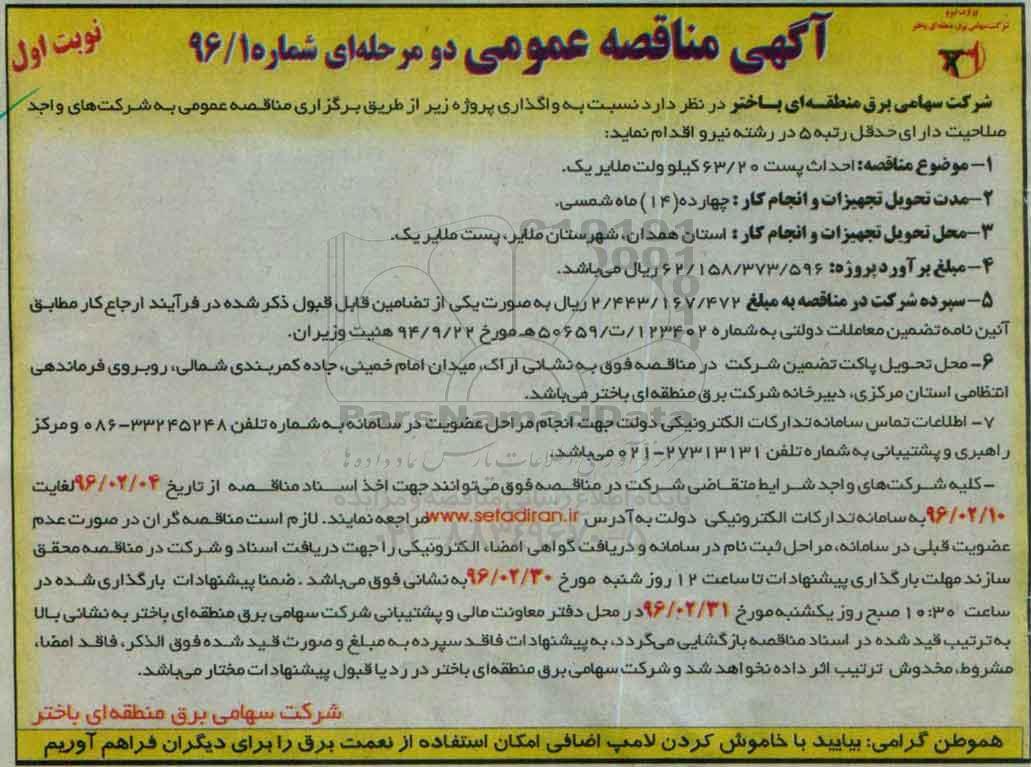 وزارت نیرو
شرکت سهامی برق منطقه‌ای باختر
آگهی مناقصه عمومی دو مرحله‌ای شماره ۹۶/۱
نوبت اول
شرکت سهامی برق منطقه‌ای باختر در نظر دارد نسبت به واگذاری پروژه زیر از طریق برگزاری مناقصه عمومی به شرکت‌های واجد
صلاحیت دارای حداقل رتبه ۵ در رشته نیرو اقدام نماید:
۱- موضوع مناقصه: احداث پست ۶۳/۲۰ کیلو ولت ملایر یک.
۲- مدت تحویل تجهیزات و انجام کار : چهارده(۱۴) ماه شمسی.
۳- محل تحویل تجهیزات و انجام کار : استان همدان، شهرستان ملایر، پست ملایر یک.
۴- مبلغ برآورد پروژه: ۶۲/۱۵۸/۳۷۳/۵۹۶ ریال می‌باشد.
۵- سپرده شرکت در مناقصه به مبلغ ۲/۴۴۳/۱۶۷/۴۷۲ ریال به صورت یکی از تضامین قابل قبول ذکر شده در فرآیند ارجاع کار مطابق
آئین نامه تضمین معاملات دولتی به شماره ۱۲۳۴۰۲/ت/۵۰۶۵۹هـ مورخ ۹۴/۹/۲۲ هئیت وزیران.
۶- محل تحویل پاکت تضمین شرکت در مناقصه فوق به نشانی اراک، میدان امام خمینی، جاده کمربندی شمالی، روبروی فرماندهی
انتظامی استان مرکزی، دبیرخانه شرکت برق منطقه‌ای باختر می‌باشد.
ParsNamadData
۷- اطلاعات تماس سامانه تدارکات الکترونیکی دولت جهت انجام مراحل عضویت در سامانه به شماره تلفن ۳۳۲۴۵۲۴۸-۰۸۶ و مرکز
راهبری و پشتیبانی به شماره تلفن ۲۷۳۱۳۱۳۱-۰۲۱ می‌باشد.
-کلیه شرکت‌های واجد شرایط متقاضی شرکت در مناقصه فوق می‌توانند جهت اخذ اسناد مناقصه از تاریخ ۹۶/۰۲/۰۴ لغایت
۹۶/۰۲/۱۰ به سامانه تدارکات الکترونیکی دولت به آدرس www.setadiran.ir مراجعه نمایند. لازم است مناقصه گران در صورت عدم
عضویت قبلی در سامانه، مراحل ثبت نام در سامانه و دریافت گواهی امضاء الکترونیکی را جهت دریافت اسناد و شرکت در مناقصه محقق
سازند مهلت بارگذاری پیشنهادات تا ساعت ۱۲ روز شنبه مورخ ۹۶/۰۲/۳۰ به نشانی فوق می‌باشد . ضمنا پیشنهادات بارگذاری شده در
ساعت ۱۰:۳۰ صبح روز یکشنبه مورخ ۹۶/۰۲/۳۱ در محل دفتر معاونت مالی و پشتیبانی شرکت سهامی برق منطقه‌ای باختر به نشانی بالا
به ترتیب قید شده در اسناد مناقصه بازگشایی می‌گردد، به پیشنهادات فاقد سپرده به مبلغ و صورت قید شده فوق الذکر، فاقد امضاء،
مشروط، مخدوش ترتیب اثر داده نخواهد شد و شرکت سهامی برق منطقه‌ای باختر در رد یا قبول پیشنهادات مختار می‌باشد.
شرکت سهامی برق منطقه‌ای باختر
هموطن گرامی: بیایید با خاموش کردن لامپ اضافی امکان استفاده از نعمت برق را برای دیگران فراهم آوریم